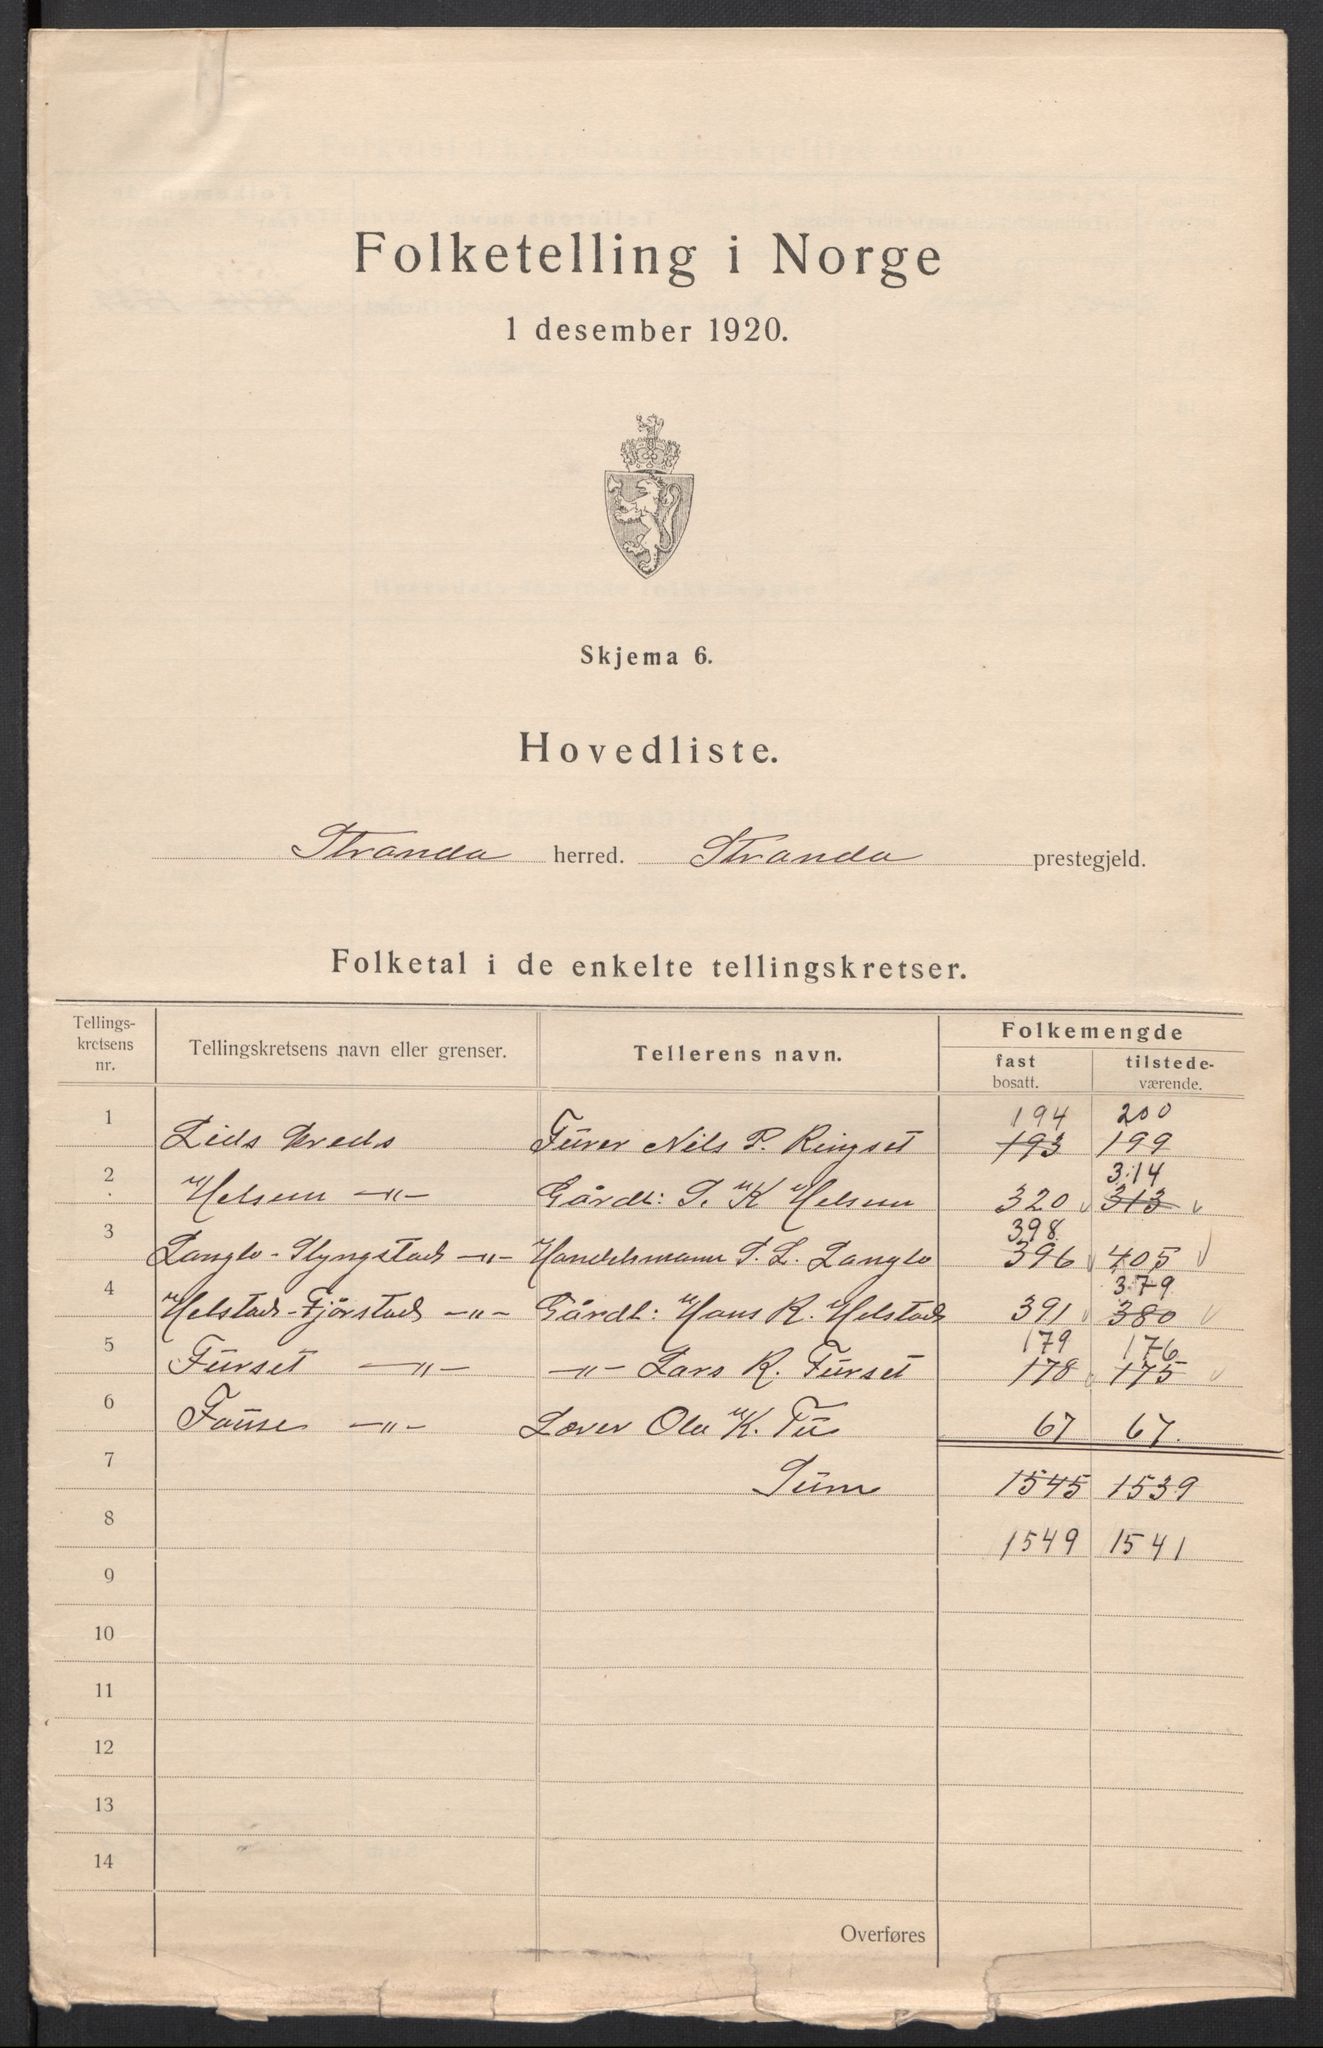 Folketelling i Norge
1 desember 1920.
Skjema 6.
Hovedliste.
Stranda herred. Stranda prestegjeld.
Folketal i de enkelte tellingskretser.
Tellings-kretsens nr. Tellingskretsens navn eller grenser. Tellerens navn. Folkemengde
fast bosatt. tilstede-værende.
194 200
1 Lids kreds Furer Nils P. Ringset 193 199
314
2 Helsem -"- Gårdb: S. K Helsem 320 313
398
3 Langlo-Slyngstad -"- Handelsmann S. L. Langlo 396 405
379
4 Helstad-Fjørstad -"- Gårdb: Hans R. Helstad 391 380
179 176
5 Furset -"- -"- Lars R. Furset 178 175
6 Fause -"- Lærer Ola K. Fu 67 67.
7 Sum 1545 1539
8 1549 1541
9
10
11
12
13
14
Overføres